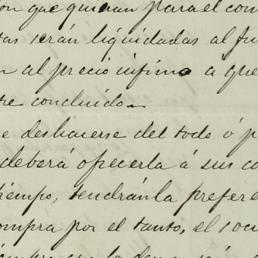 on que quieran para el con
tas serán liquidadas al fu
n al precio ínfimo á que
tre concluido.
e deshacerse del todo ó p
deberá ofrecerla á sus co
tiempo, tendrán la prefere
ompra por el tanto, el soci